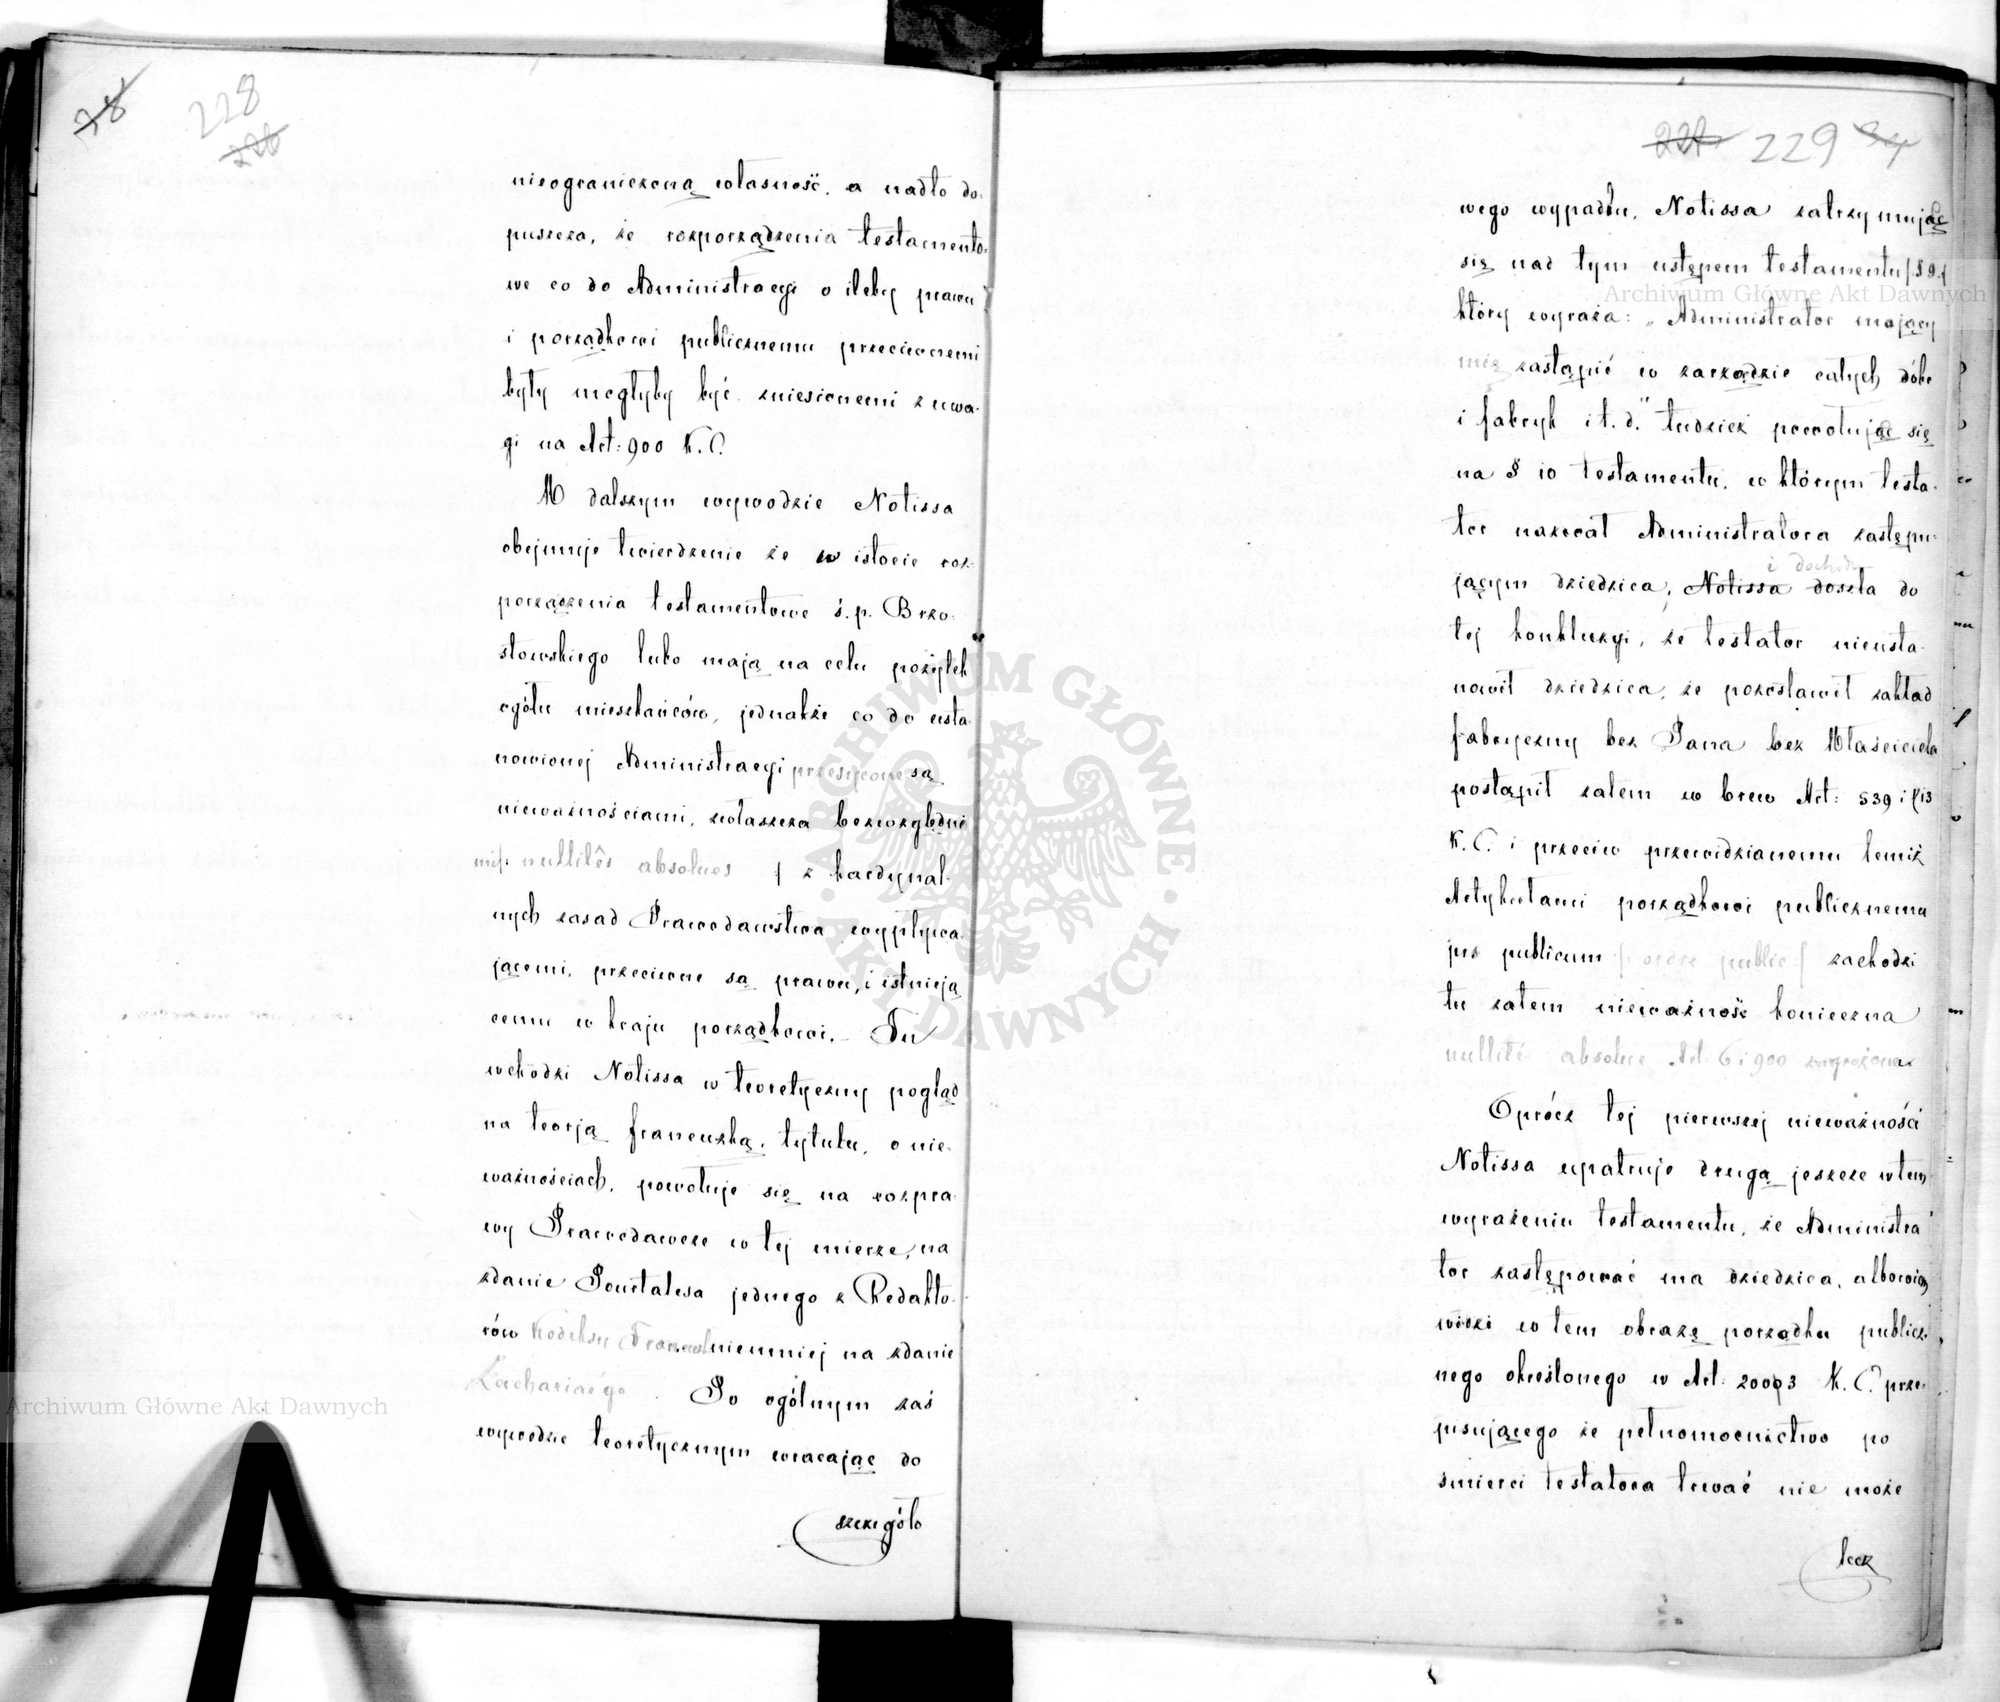 78
228
226
nieograniczoną własność, a nadto do-
puszcza, że rozporządzenia testamento-
we co do Administracyi o ileby prawu
i porządkowi publicznemu przeciwnemi
były mogłyby być zniesionemi z uwa-
gi na Art: 900 K. C.
W dalszym wywodzie Notissa
obejmuje twierdzenie że w istocie roz-
porządzenia testamentowe ś. p. Brzo-
stowskiego lubo mają na celu pożytek
ogółu mieszkańców, jednakże co do usta-
nowionej Administracyi przesycone są
nieważnościami, zwłaszcza bezwzględne
nullités absolues z kardynal-
nych zasad Prawodawstwa wypływa-
jącemi, przeciwne są prawu, i istnieją
cemu w kraju porządkowi. Tu
wchodzi Notissa w teoretyczny pogląd
na teorją francuzką, tytułu, o nie-
ważnościach, powołuje się na rozpra-
wy Prawodawcze w tej mierze, na
zdanie Pourtalesa jednego z Redakto-
rów Kodeksu niemniej na zdanie
Zachariaégo. Po ogólnym zaś
wywodzie teoretycznym wracając do
szczegóło
227 229 34
wego wypadku, Notissa zatrzymując
się nad tym ustępem testamentu /: § 9 :/
który wyraża: „Administrator mający
mię zastąpić w zarządzie całych dóbr
i fabryk i t. d." tudzież powołując się
na § 10 testamentu, w którym testa-
tor nazwał Administratora zastępu-
i dochodzi
jącym dziedzica, Notissa doszła do
tej konkluzyi, że testator nieusta-
nowił dziedzica, że pozostawił zakład
fabryczny bez Pana bez Właściciela
postąpił zatem w brew Art: 539 i 713
K. C. i przeciw przewidzianemu temiż
Artykułami porządkowi publicznemu
jus publicum /: ordre public :/ zachodzi
tu zatem nieważność konieczna
nullité absolue Art. 6 i 900 zagrożona
Oprócz tej pierwszej nieważności
Notissa upatruje drugą jeszcze w tem
wyrażeniu testamentu, że Administra
tor zastępować ma dziedzica, albowiem
widzi w tem obrazę porządku publicz-
nego określonego w Art: 2003 K. C. prze-
pisującego że pełnomocnictwo po
śmierci testatora trwać nie może
lecz
Archiwum Główne Akt Dawnych
Archiwum Główne Akt Dawnych
ARCHIWUM GŁÓWNE
AKT DAWNYCH